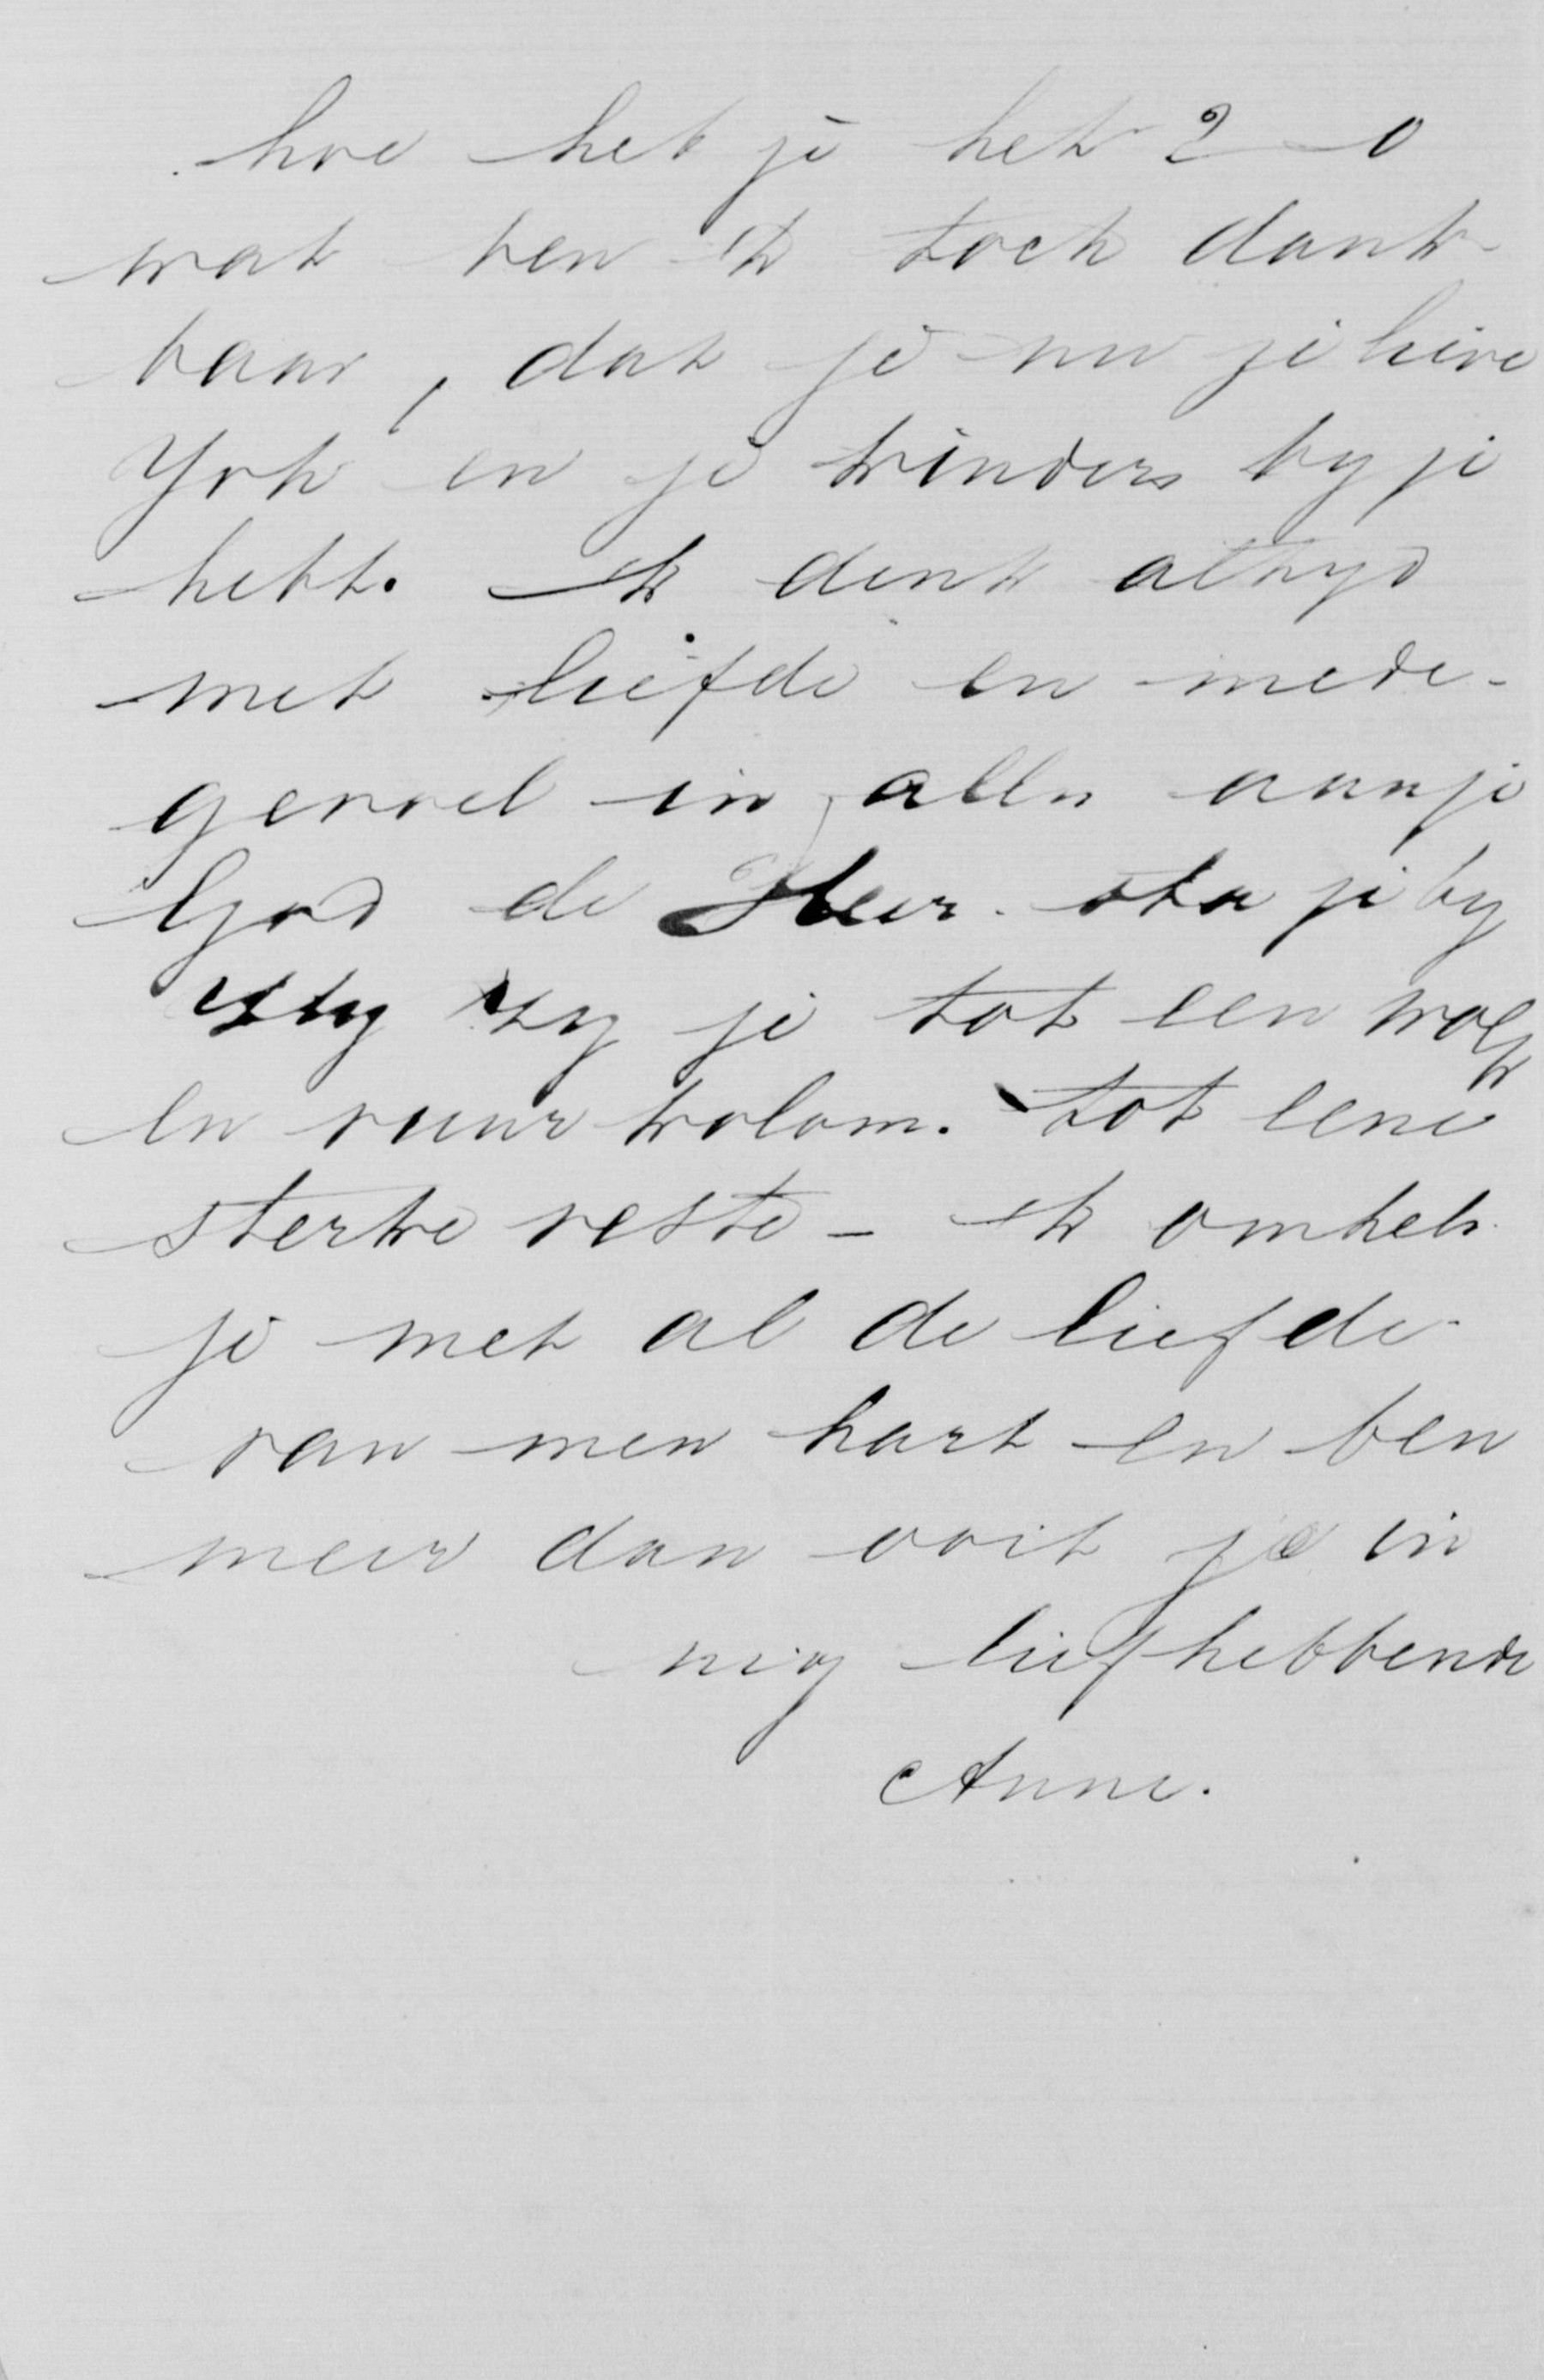 hoe heb je het? o
wat ben ik toch dank-
baar, dat je nu je lieve
en je kinders by je
hebt. ik denk altyd
met liefde en mede-
gevoel in alles aan je
God de Heer sta je by
Hy zy je tot een wolk
en vuur kolom. tot eene
sterke veste - ik omhels
je met al de liefde
van men hart en ben
meer dan ooit je in
nig liefhebbende
Anne.